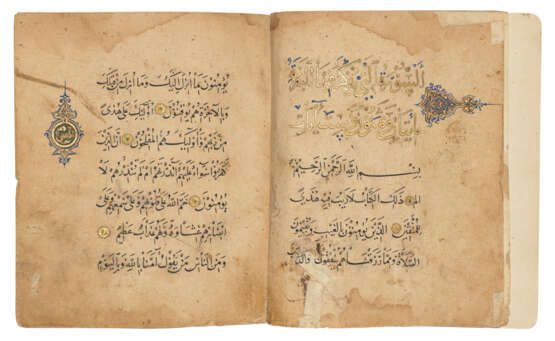 السورة التي تذكر فيها البقرة
وست آيات
بسم الله الرحمن الرحيم
الم ذلك الكتاب لا ريب فيه هدى
للمتقين الذين يؤمنون بالغيب ويقيمون
الصلاة ومما رزقناهم ينفقون والذين
يؤمنون بما أنزل إليك وما أنزل من قبلك
وبالآخرة هم يوقنون أولئك على هدى
من ربهم وأولئك هم المفلحون إن الذين
كفروا سواء عليهم أأنذرتهم أم لم تنذرهم لا
يؤمنون ختم الله على قلوبهم وعلى سمعهم وعلى
أبصارهم غشاوة ولهم عذاب عظيم
ومن الناس من يقول آمنا بالله وباليوم